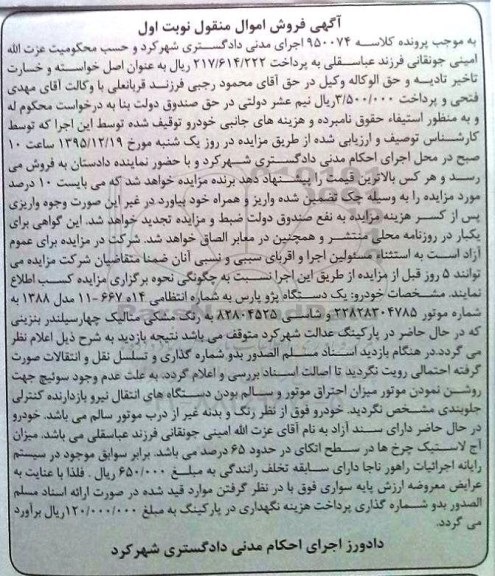 آگهی فروش اموال منقول نوبت اول
به موجب پرونده کلاسه ۹۵۰۰۷۴ اجرای مدنی دادگستری شهرکرد و حسب محکومیت عزت الله
امینی جونقانی فرزند عباسقلی به پرداخت ۲۱۷/۶۱۴/۲۲۲ ریال به عنوان اصل خواسته و خسارت
تاخیر تادیه و حق الوکاله وکیل در حق آقای محمود رجبی فرزند قربانعلی با وکالت آقای مهدی
فتحی و پرداخت ۳/۵۰۰/۰۰۰ریال نیم عشر دولتی در حق صندوق دولت بنا به درخواست محکوم له
و به منظور استیفاء حقوق نامبرده و هزینه های جانبی خودرو توقیف شده توسط این اجرا که توسط
کارشناس توصیف و ارزیابی شده از طریق مزایده در روز یک شنبه مورخ ۱۳۹۵/۱۲/۱۹ ساعت ۱۰
صبح در محل اجرای احکام مدنی دادگستری شهرکرد و با حضور نماینده دادستان به فروش می
رسد و هر کس بالاترین قیمت را پیشنهاد دهد برنده مزایده خواهد شد که می بایست ۱۰ درصد
مورد مزایده را به وسیله چک تضمین شده واریز و همراه خود بیاورد در غیر این صورت وجوه واریزی
پس از کسر هزینه مزایده به نفع صندوق دولت ضبط و مزایده تجدید خواهد شد. این گواهی برای
یکبار در روزنامه محلی منتشر و همچنین در معابر الصاق خواهد شد. شرکت در مزایده برای عموم
آزاد است به استثناء مسئولین اجرا و اقربای سببی و نسبی آنان ضمنا متقاضیان شرکت مزایده می
توانند ۵ روز قبل از مزایده از طریق این اجرا نسبت به چگونگی نحوه برگزاری مزایده کسب اطلاع
نمایند. مشخصات خودرو: یک دستگاه پژو پارس به شماره انتظامی ۱۴ه ۶۶۷-۱۱ مدل ۱۳۸۸ به
شماره موتور ۲۲۸۲۸۳۰۴۷۸۵ و شاسی ۸۳۸۰۴۵۲۵ به رنگ مشکی متالیک چهارسیلندر بنزینی
که در حال حاضر در پارکینگ عدالت شهرکرد متوقف می باشد نتیجه بازدید به شرح ذیل اعلام نظر
می گردد.در هنگام بازدید اسناد مسلم الصدور بدو شماره گذاری و تسلسل نقل و انتقالات صورت
گرفته احتمالی رویت نگردید تا اصالت اسناد بررسی و اعلام گردد. به علت عدم وجود سوئیچ جهت
روشن نمودن موتور میزان احتراق موتور و سالم بودن دستگاه های انتقال نیرو بازدارنده کنترلی
جلوبندی مشخص نگردید. خودرو فوق از نظر رنگ و بدنه غیر از درب موتور سالم می باشد. خودرو
در حال حاضر دارای سند آزاد به نام آقای عزت الله امینی جونقانی فرزند عباسقلی می باشد. میزان
آج لاستیک چرخ ها در سطح اتکای در حدود ۶۵ درصد می باشد. برابر سوابق موجود در سیستم
رایانه اجرائیات راهور ناجا دارای سابقه تخلف رانندگی به مبلغ ۶۵۰/۰۰۰ ریال - فلذا با عنایت به
عرایض معروضه ارزش پایه سواری فوق با در نظر گرفتن موارد قید شده در صورت ارائه اسناد مسلم
الصدور بدو شماره گذاری پرداخت هزینه نگهداری در پارکینگ به مبلغ ۱۲۰/۰۰۰/۰۰۰ریال برآورد
می گردد.
دادورز اجرای احکام مدنی دادگستری شهرکرد